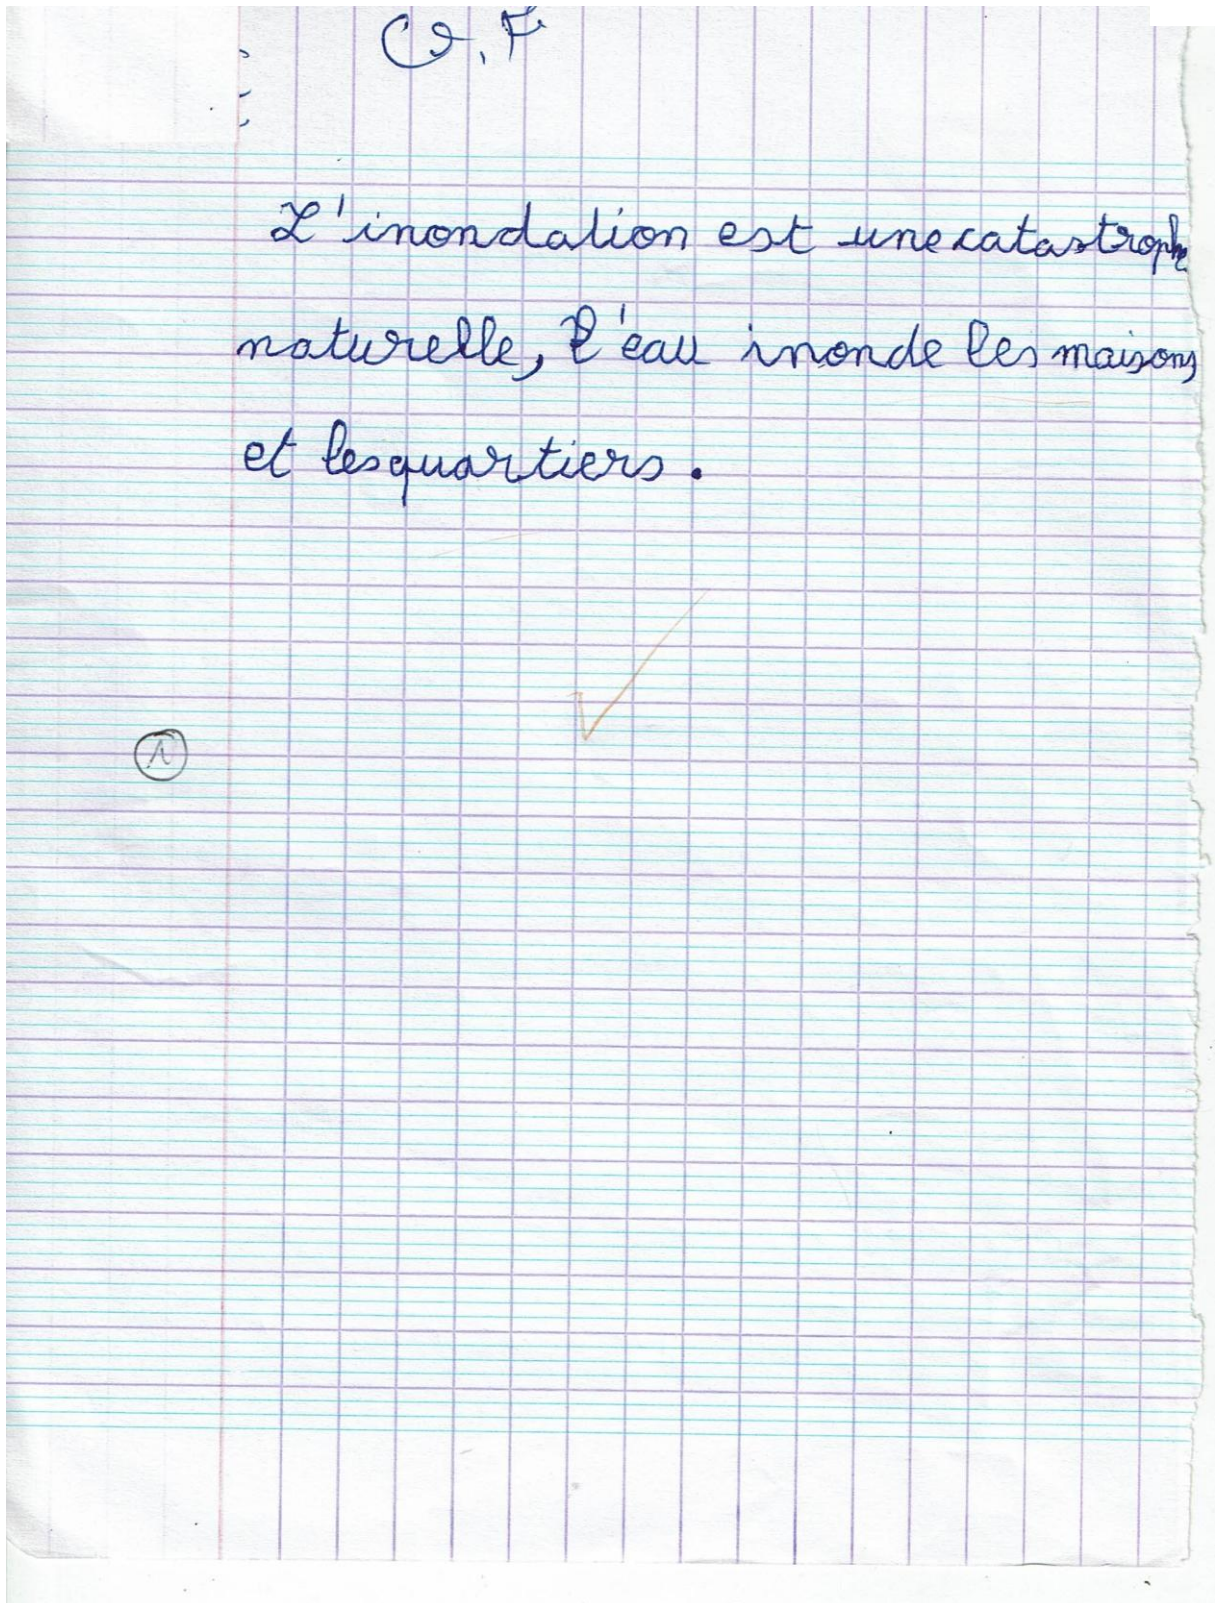 L'inondation est une catastrophe
naturelle, l'eau inonde les maisons
et les quartiers.